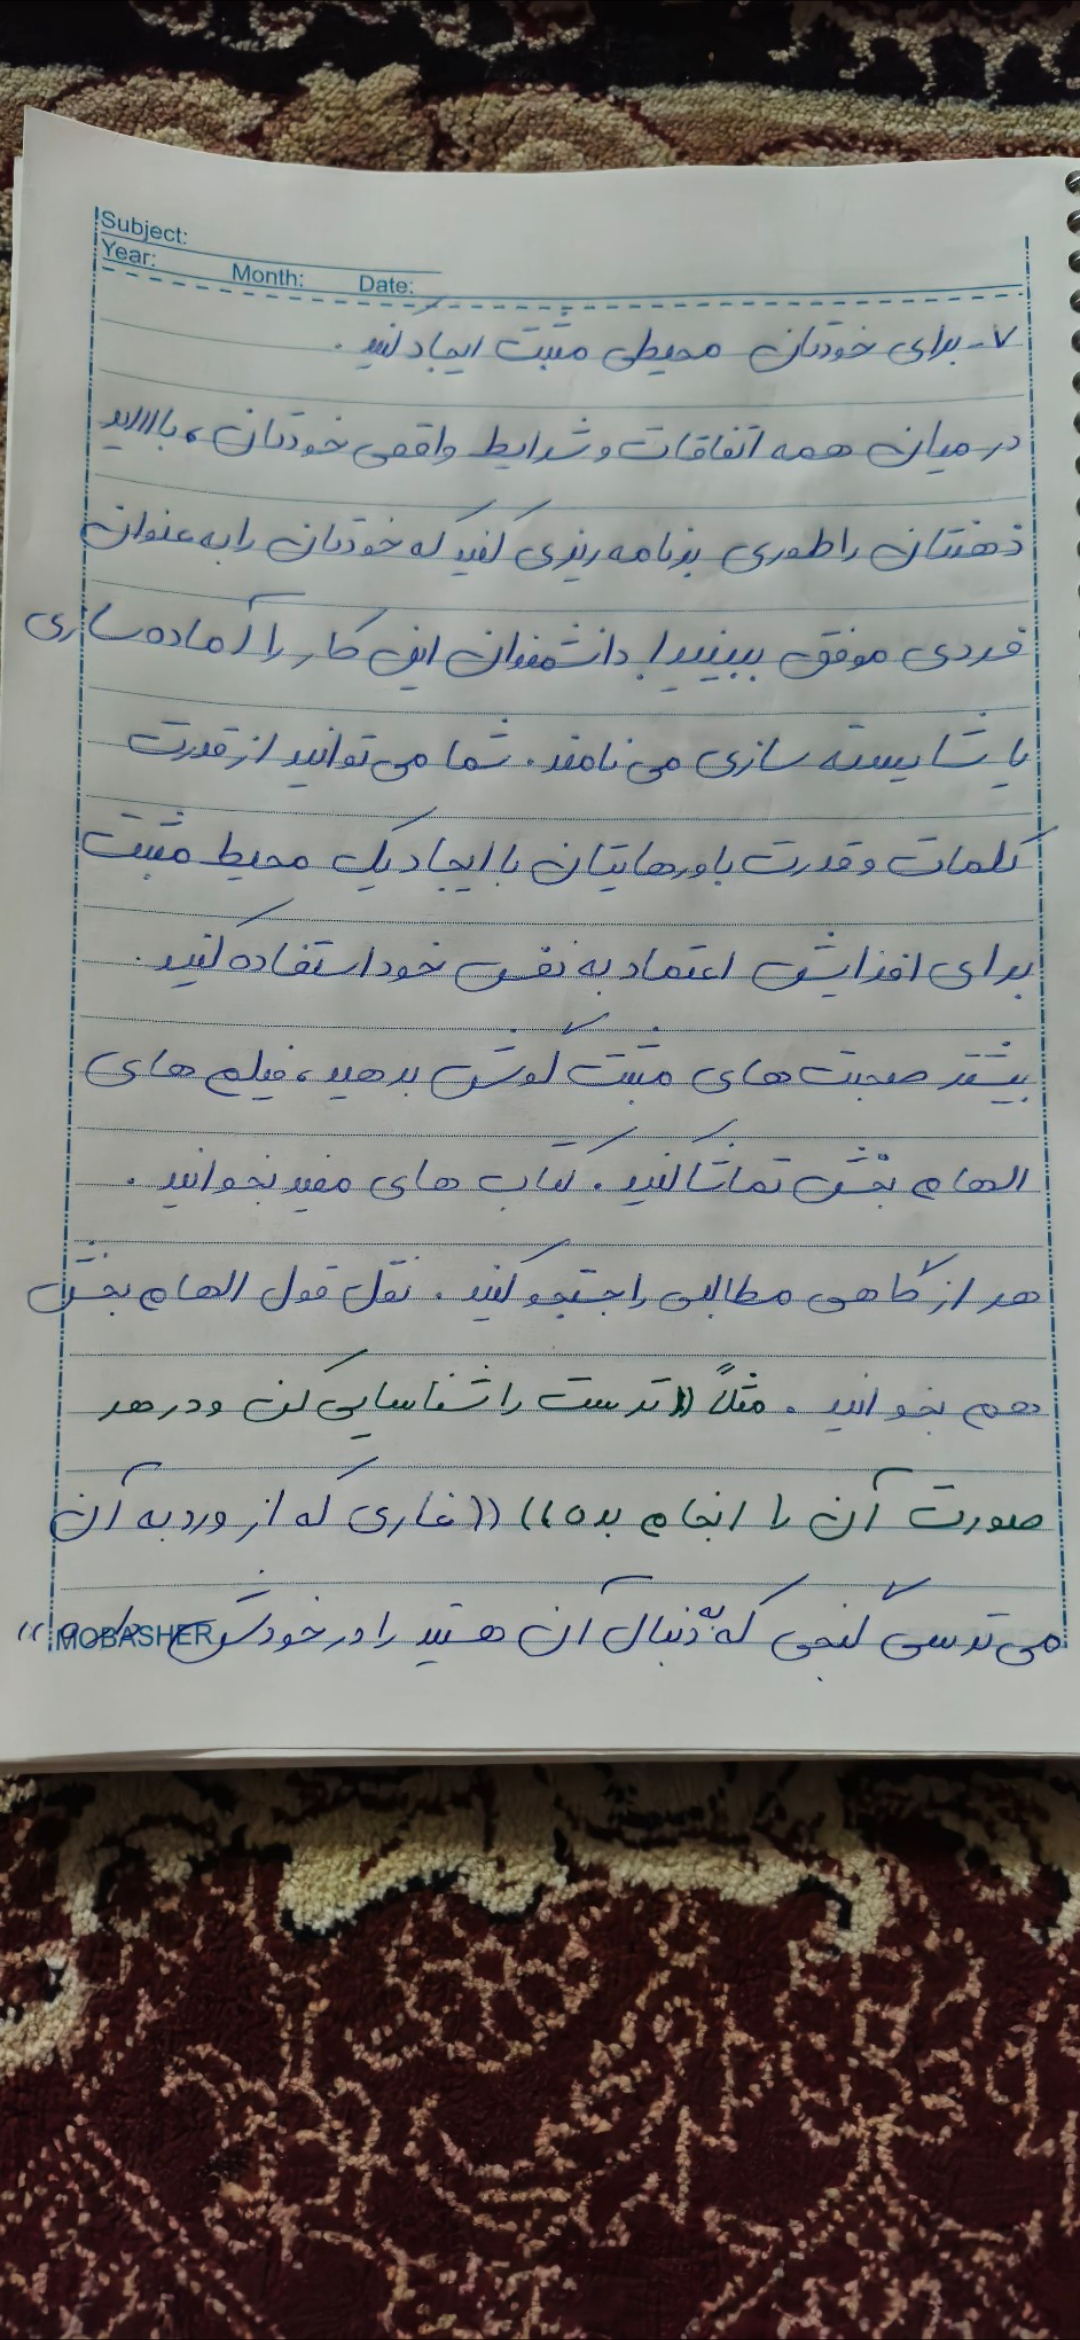 Subject:
Year: Month: Date:
۷- برای خودتان محیطی مثبت ایجاد کنید.
در میان همه اتفاقات و شرایط واقعی خودتان، باااااید
ذهنتان را طوری برنامه ریزی کنید که خودتان را به عنوان
فردی موفق ببینید! دانشمندان این کار را آماده سازی
یا شایسته سازی می نامند. شما می توانید از قدرت
کلمات و قدرت باورهایتان با ایجاد یک محیط مثبت
برای افزایش اعتماد به نفس خود استفاده کنید.
بیشتر صحبت های مثبت گوش بدهید، فیلم های
الهام بخش تماشا کنید. کتاب های مفید بخوانید.
هر از گاهی مطالبی را جستجو کنید. نقل قول الهام بخش
هم بخوانید. مثلاً ((ترست را شناسایی کن و در هر
صورت آن را انجام بده)) ((غاری که از ورد به آن
می ترسی گنجی که به دنبال آن هستید را در خودش
MOBASHER